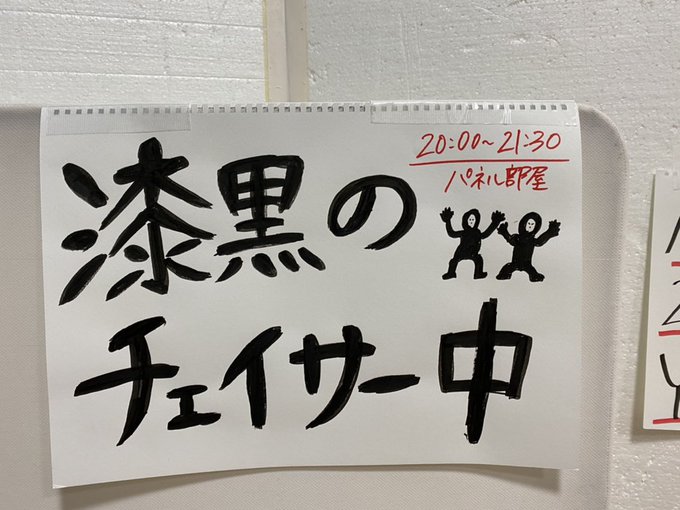 20:00~21:30
パネル部屋
漆黒の
チェイサー中